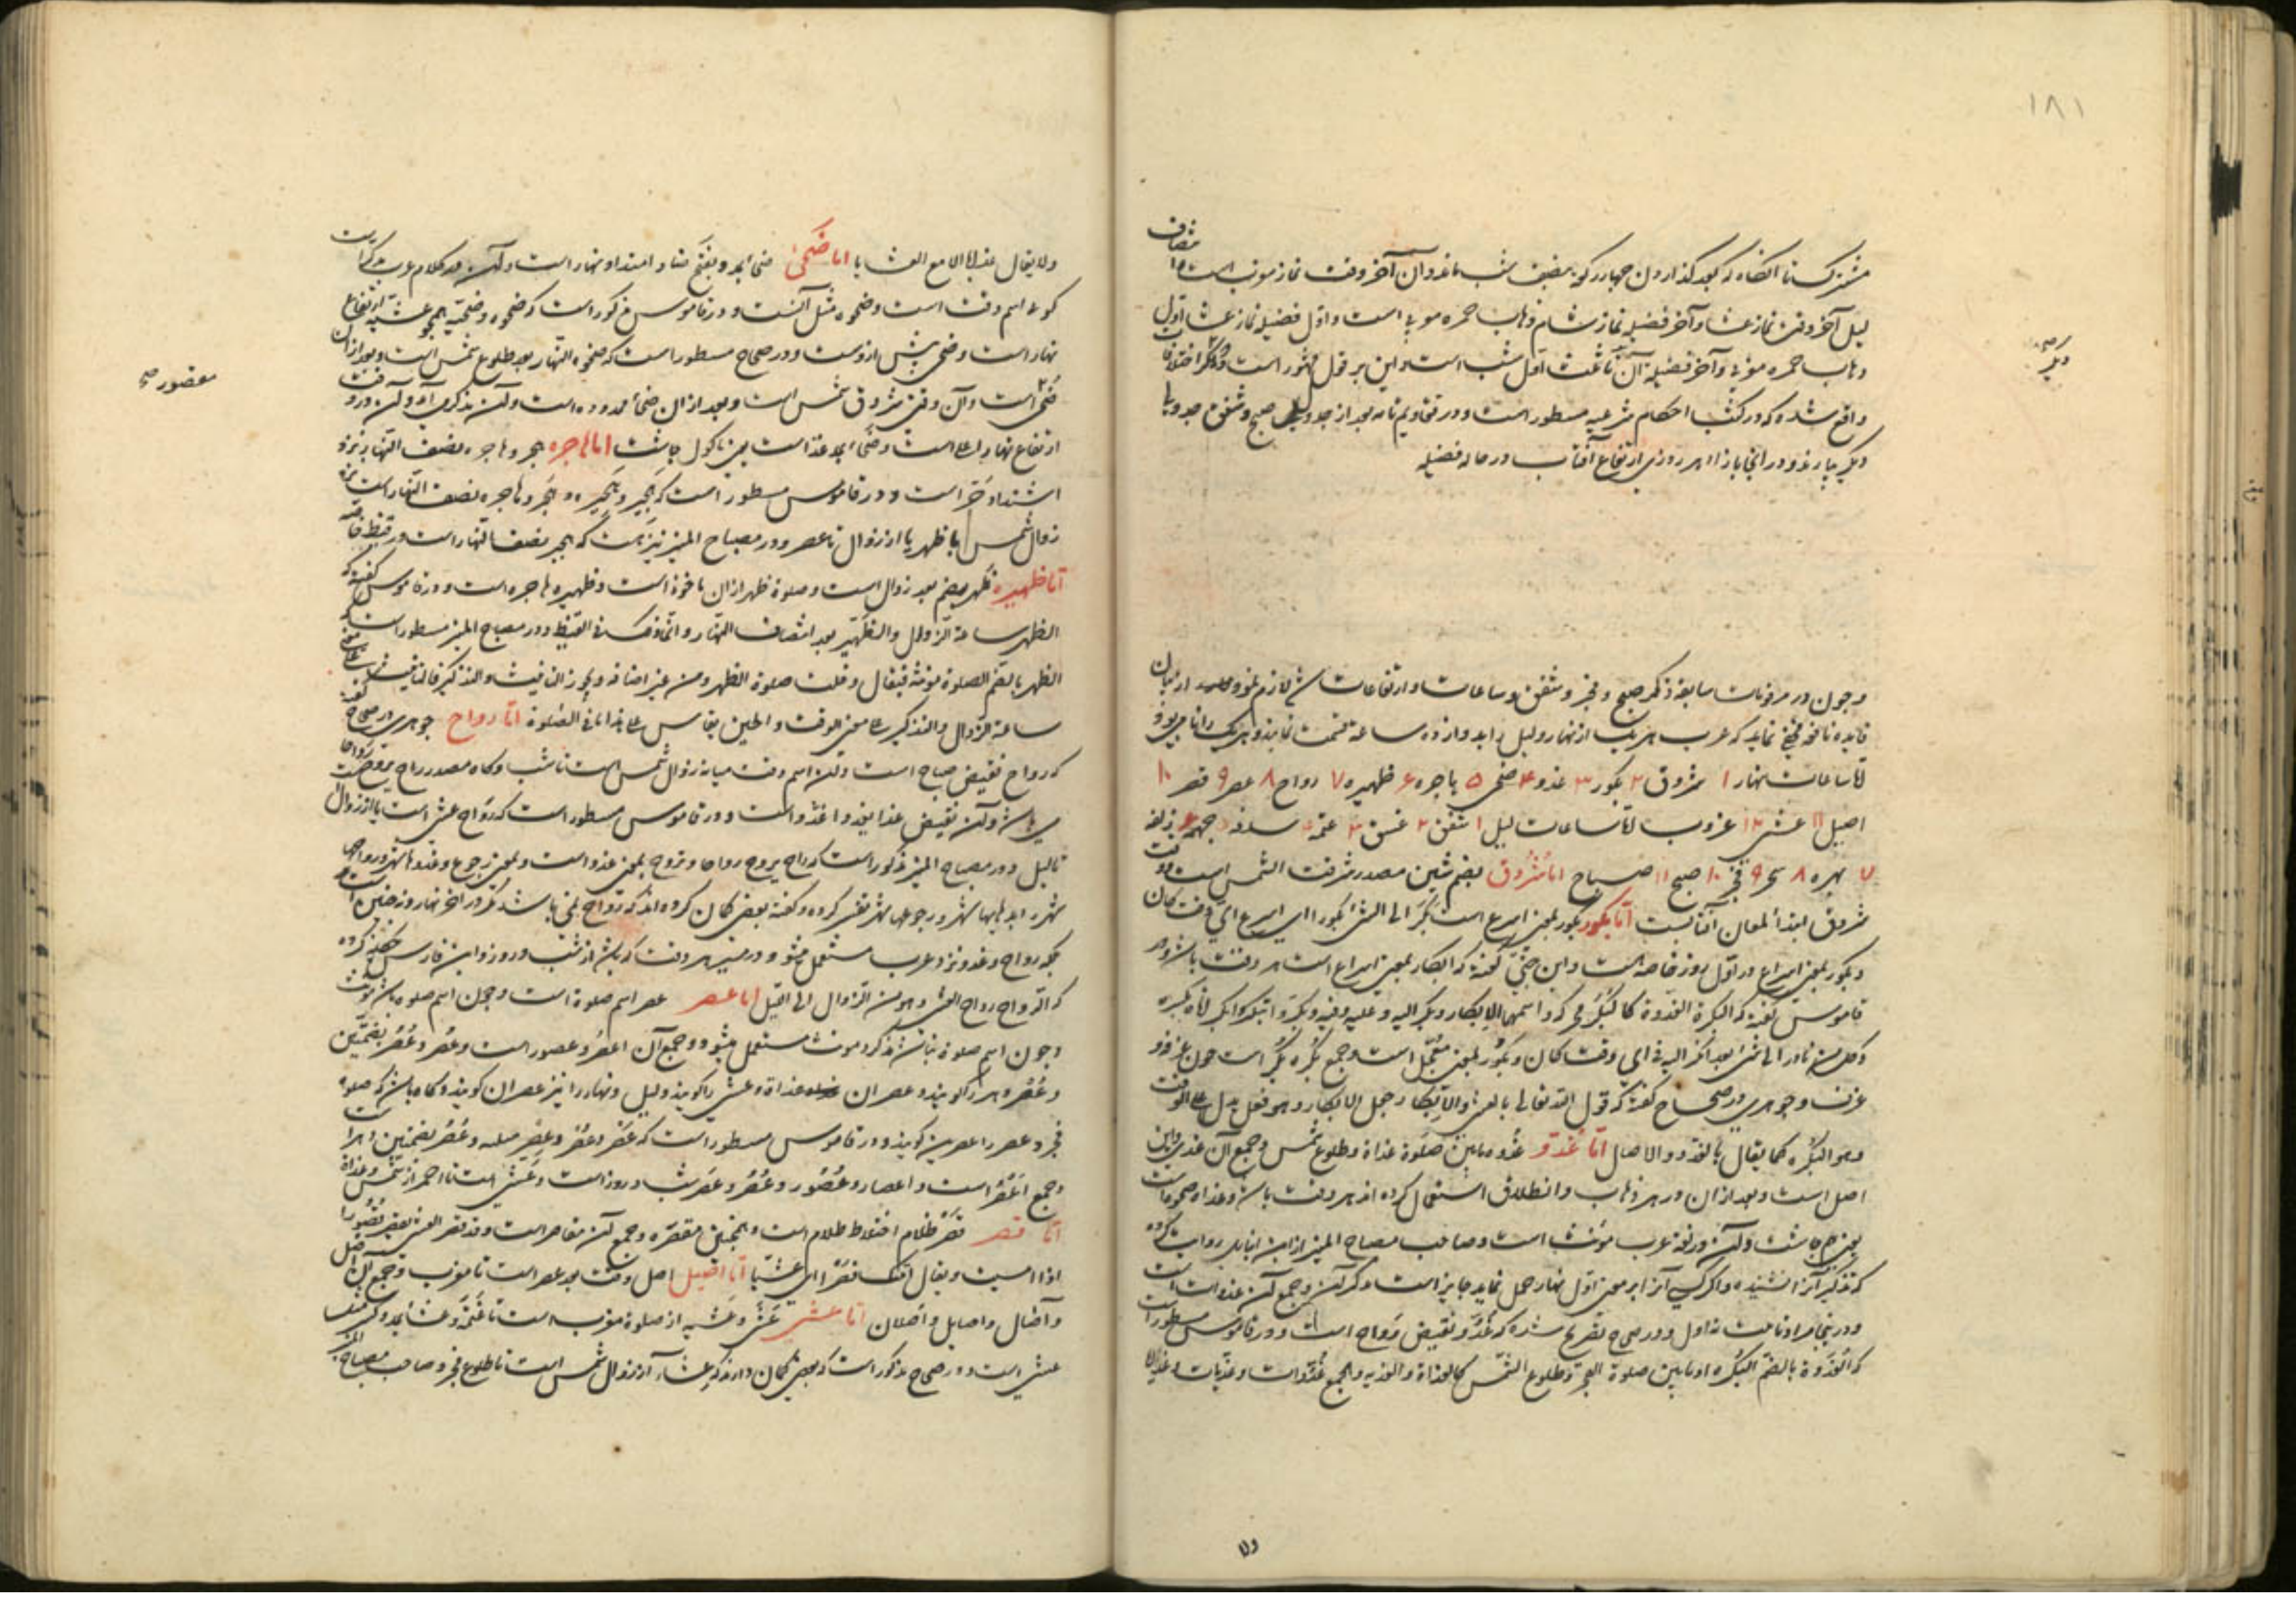 ۱۸۱
مشترک تا آنگاه که بعد گذاردن چهار رکوع بنصف شب ماند و آن آخر وقت نماز مغرب است و انتصاف
لیل آخر وقت نماز عشا و آخر فضیلة نماز شام ذهاب حمره مغربیه است و اول فضیلة نماز عشا اول
ذهاب حمره مغربیه و آخر فضیلة آن تا ثلث اول شب است و این بر قول مشهور است و دیگر اختلافها
واقع شده که در کتب احکام شرعیه مسطور است و در تقاویم تامه بعد از جدول صبح و شفق جدولها
دیگر بیارند و در آنجا بازاء هر روزی ارتفاع آفتاب در حاله فضیله
دیگر صح
و چون در مرقومات سابقه ذکر صبح و فجر و شفق و ساعات و ارتفاعات لازم نمود از بیان
فایده نافعه نماید که عرب هر یک از نهار و لیل را بدوازده ساعة قسمت نمایند و هر یک را نامی بود
اما ساعات نهار ۱ شروق ۲ بکور ۳ غدو ۴ ضحی ۵ هاجره ۶ ظهیره ۷ رواح ۸ عصر ۹ قصر ۱۰
اصیل ۱۱ عشی ۱۲ غروب اما ساعات لیل ۱ شفق ۲ غسق ۳ عتمه ۴ سدفه ۵ جهمه ۶ زلفه
۷ بهره ۸ سحر ۹ فجر ۱۰ صبح ۱۱ صباح اما شُرُوق بضم شین مصدر شرقت الشمس است و وقت
شروق ابتداء لمعان آفتابست اما بکور بکور بمعنی اسرع است بَکَرَ الی الشئ بکورا ای اسرع ای وقت کان
و بکور بمعنی اسراع در اول روز خاصه است و ابن جنی گفته که ابکار بمعنی اسراع است هر وقت باشد و در
قاموس گفته که البکرة الغدوة کالبَکَر محرکه و اسمها الابکار و بکر الیه و علیه و فیه و بکّر و ابتکر و ابکر اتاه بکرة
و کل من بادر الی شئ فقد ابکر الیه فی ای وقت کان و بکور بمعنی معجّل است و جمع بکره بکر است چون غرفه و
غرف و جوهری در صحاح گفته که قول الله تعالی بالعشی والابکار جعل الابکار و هو فعل یدل علی الوقت
و هو البکره کما یقال بالغدو و الاصال اما غُدُوّ غدو مابین صلوة غداة و طلوع شمس و جمع آن غدی و این
اصل است و بعد از آن در هر ذهاب و انطلاق استعمال کرده اند هر وقت باشد و غداة ضحوه است
یعنی چاشت و آن در لغة عرب مؤنث است و صاحب مصباح المنیر از ابن انباری روایت کرده
که تذکیر آنرا نشنیده و اگر کسی آنرا بر معنی اول نهار حمل نماید جایز است ذکر آن و جمع آن غدوات است
و در ینجا مراد ثالث نه اول و در صحاح تصریح شده که غُدُوّ نقیض رَواح است و در قاموس مسطور است
که الغدوة بالضم البکره او مابین صلوة الفجر و طلوع الشمس کالغداة و الغدیه و الجمع غُدُوات و غدیات و غدایا
ولا
ولا یقال غدایا الا مع العشایا اما ضُحی ضحی بمد و بفتح ضاد امتداد نهار است و آن در کلام عرب مذکر است
گویا اسم وقت است و ضحوه مثل آنست و در قاموس مذکور است که ضحوه و ضحیّه همچو عشیّه ارتفاع
نهار است و ضحی پیش ازوست و در صحاح مسطور است که ضحوه النهار بعد طلوع شمس است و بعد از آن
ضُحی است و آن وقتی شروق شمس است و بعد از آن ضحاء ممدوده است و آن مذکر آمده و آن در وقت
ارتفاع نهار اعلی است و ضحاء بمد غذاست یعنی ماکول چاشت اما هاجره هجر و هاجره نصف النهار نزد
اشتداد حَرّ است و در قاموس مسطور است که هجیر و هجیره و هَجر و هاجره نصف النهار است نزد
زوال شمس با ظهر یا از زوال تا عصر و در مصباح المنیر نیز هست که هجیر نصف النهار است در قیظ خاصه
اما ظهیره ظُهر بضم بعد زوال است و صلوة ظهر از آن ماخوذ است و ظهیره هاجره است و در قاموس گفته که
الظهر ساعة الزوال والظهیر بعد انتصاف النهار و انما ذلک فی القیظ و در مصباح المنیر مسطور است که
الظهر بالضم الصلوة مؤنثه فیقال دخلت صلوة الظهر و من غیر اضافه و یجوز التانیث والتذکیر فالتانیث علی معنی
ساعة الزوال والتذکیر علی معنی الوقت و الحین یقاس علی هذا باقی الصلوة اما رواح جوهری در صحاح گفته
که رواح نقیض صباح است و آن اسم وقت میانه زوال شمس است تا شب و گاه مصدر راح یروح رواحا
می باشد و آن نقیض غدا یغدو غدوّا است و در قاموس مسطور است که رَواح عشی است یا از زوال
تا لیل و در مصباح المنیر مذکور است که راح یروح رواحا و تروح بمعنی غدو است و بمعنی رجوع و غدوها شهر و رواحها
شهر را بذهابها شهر و رجوعها شهر تفسیر کرده و گفته بعضی گمان کرده اند که رواح نمی باشد مگر در آخر نهار و نه چنین است
بلکه رواح و غدو نزد عرب مستعمل میشود در مسیر هر وقت که باشد از شب و روز و ابن فارس گفته
که الرواح رواح العشی و هو من الزوال الی اللیل اما عصر عصر اسم صلوة است و چون اسم صلوة باشد مؤنث
و چون اسم صلوة نباشد مذکر و مؤنث مستعمل میشود و جمع آن اعصُر و عصور است و عُصر و عُصُر بضمتین
و عُصُر دهر را گویند و عصران غداة و عشی را گویند و لیل و نهار را نیز عصران گویند و گاه باشد که صلوة
فجر و عصر را عصرین گویند و در قاموس مسطور است که عَصر و عُصر و عِصر مثلثه و عُصُر بضمتین دهر است
و جمع اعصُر است و اعصار و عُصُور و عُصُر و عَصر شب و روز است و عَشی است تا احمرار شمس و غداة
اما قصر قَصرُ ظلام اختلاط ظلام است و همچنین مقصَره و جمع آن مقاصر است و قد قصر العشی یقصر قصُورا
اذا امسیت و یقال اتیتک قصرا ای عشیّا اما اصیل اصیل وقت بعد عصر است تا مغرب و جمع آن اُصُل
و آصال و اصایل و اُصلان اما عشی عَشی و عَشیه از صلوة مغرب است تا عَتَمَه و عشاء بمد و کسر مثل
عشی است و در صحاح مذکور است که بعضی گمان دارند که عشاء از زوال شمس است تا طلوع فجر و صاحب مصباح المنیر